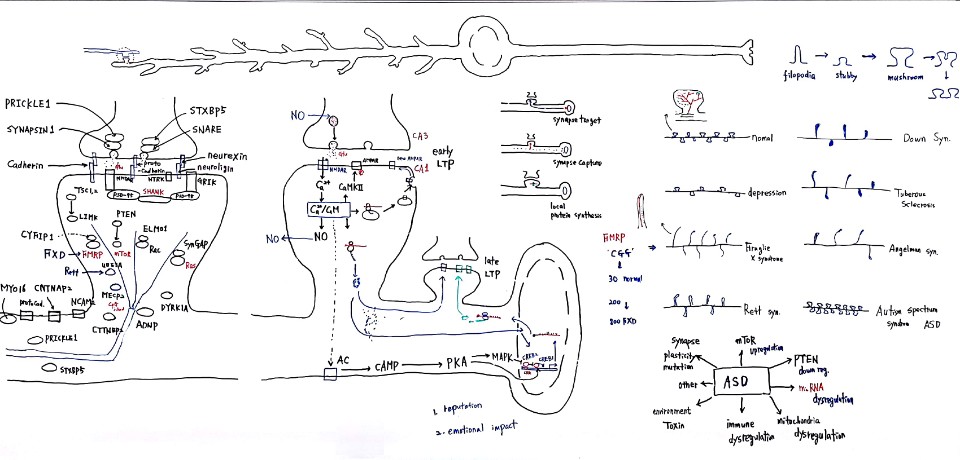 filopodia
stubby
mushroom
PRICKLE1
STXBP5
SYNAPSIN1
SNARE
Cadherin
Glu
proto
-Cadherin
neurexin
neuroligin
NMDAR
NTRK
GRIK
PSD-95
SHANK
PSD-95
TSC1,2
LIMK
PTEN
ELMO1
CYFIP1
FXD
FMRP
mTOR
Rac
SynGAP
Ras
Rett
UBE3A
MECP2
DYRK1A
MYO16
CNTNAP2
protocad.
NCAM2
CTTNBP2
ADNP
PRICKLE1
STXBP5
NO
Glu
CA3
early
LTP
NMDAR
AMPAR
new AMPAR
CA1
Ca2+
CaMKII
Ca2+/CaM
NO
NO
late
LTP
AC
CAMP
PKA
MAPK
CREB1
1. reputation
2. emotional impact
synapse target
synapse capture
local
protein synthesis
normal
Down Syn.
depression
Tuberous
Sclerosis
FMRP
CGG
30 normal
200
800 FXD
Fragile
X syndrome
Angelman syn.
Rett syn.
Autism spectrum
syndrom ASD
ASD
synapse
plasticity
mutation
mTOR
upregulation
PTEN
down reg.
mRNA
dysregulation
mitochondria
dysregulation
immune
dysregulation
environment
Toxin
other